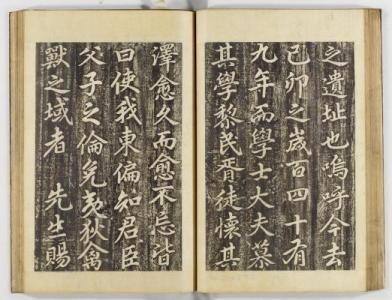 之遺址也嗚呼今去
己卯之歲百四十有
九年而學士大夫慕
其學黎民胥徒懷其
澤愈久而愈不忘皆
曰使我東偏知君臣
父子之倫免夷狄禽
獸之域者　先生賜